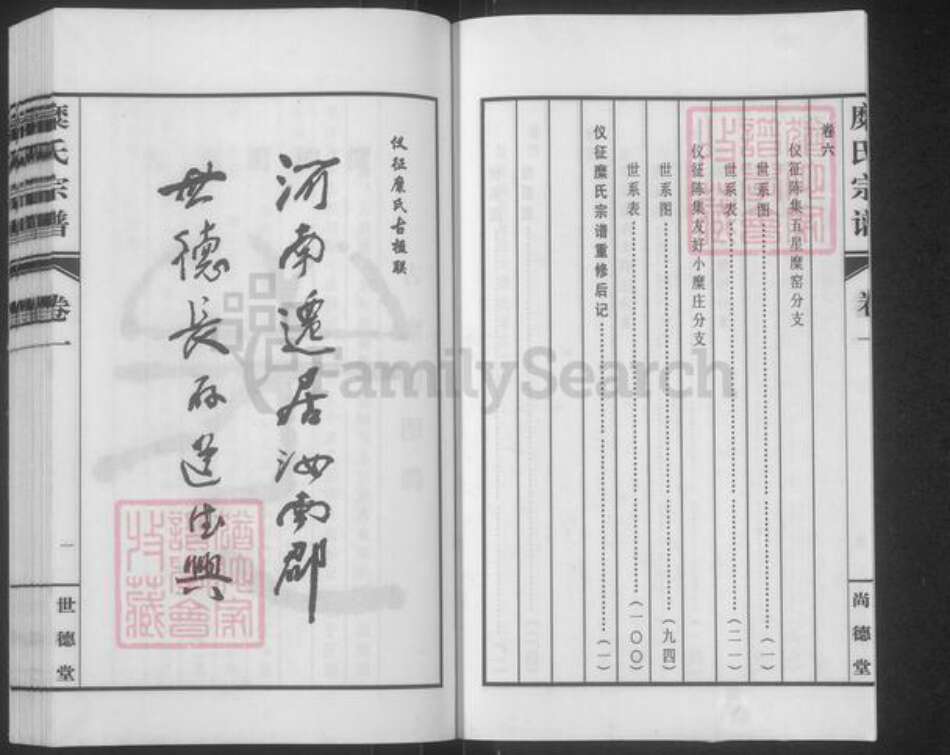 糜氏宗谱
卷一
尚德堂
卷六
仪征陈集五星糜窑分支
世系图（一）
世系表（二一）
仪征陈集友好小糜庄分支
世系图（九四）
世系表（一〇〇）
仪征糜氏宗谱重修后记（一）
仪征糜氏古楹联
河南遷居汝南郡
世德長存道生興
糜氏宗谱
卷一
一
世德堂
FamilySearch